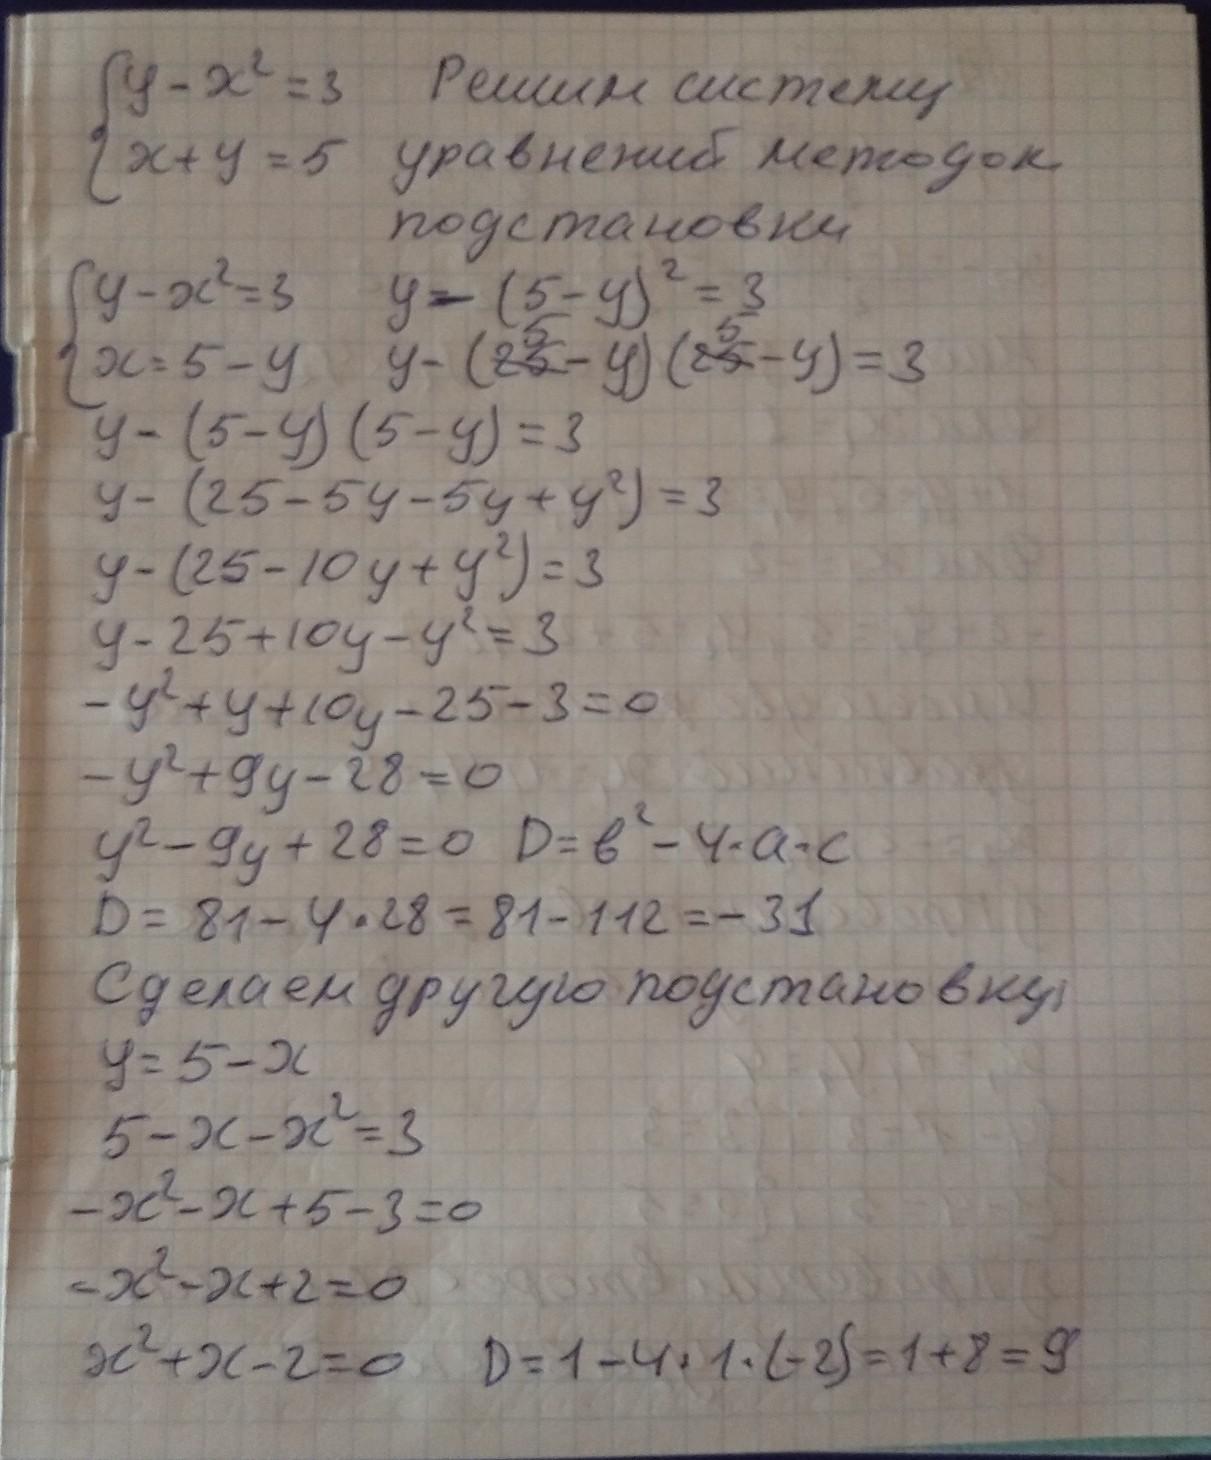 {y - x² = 3 Решим систему
{x + y = 5 уравнений методом
подстановки
{y - x² = 3 y - (5 - y)² = 3
{x = 5 - y y - (5 - y) (5 - y) = 3
y - (5 - y) (5 - y) = 3
y - (25 - 5y - 5y + y²) = 3
y - (25 - 10y + y²) = 3
y - 25 + 10y - y² = 3
- y² + y + 10y - 25 - 3 = 0
- y² + 9y - 28 = 0
y² - 9y + 28 = 0 D = в² - 4·a·c
D = 81 - 4·28 = 81 - 112 = - 31
Сделаем другую подстановку,
y = 5 - x
5 - x - x² = 3
- x² - x + 5 - 3 = 0
- x² - x + 2 = 0
x² + x - 2 = 0 D = 1 - 4·1·(-2) = 1 + 8 = 9